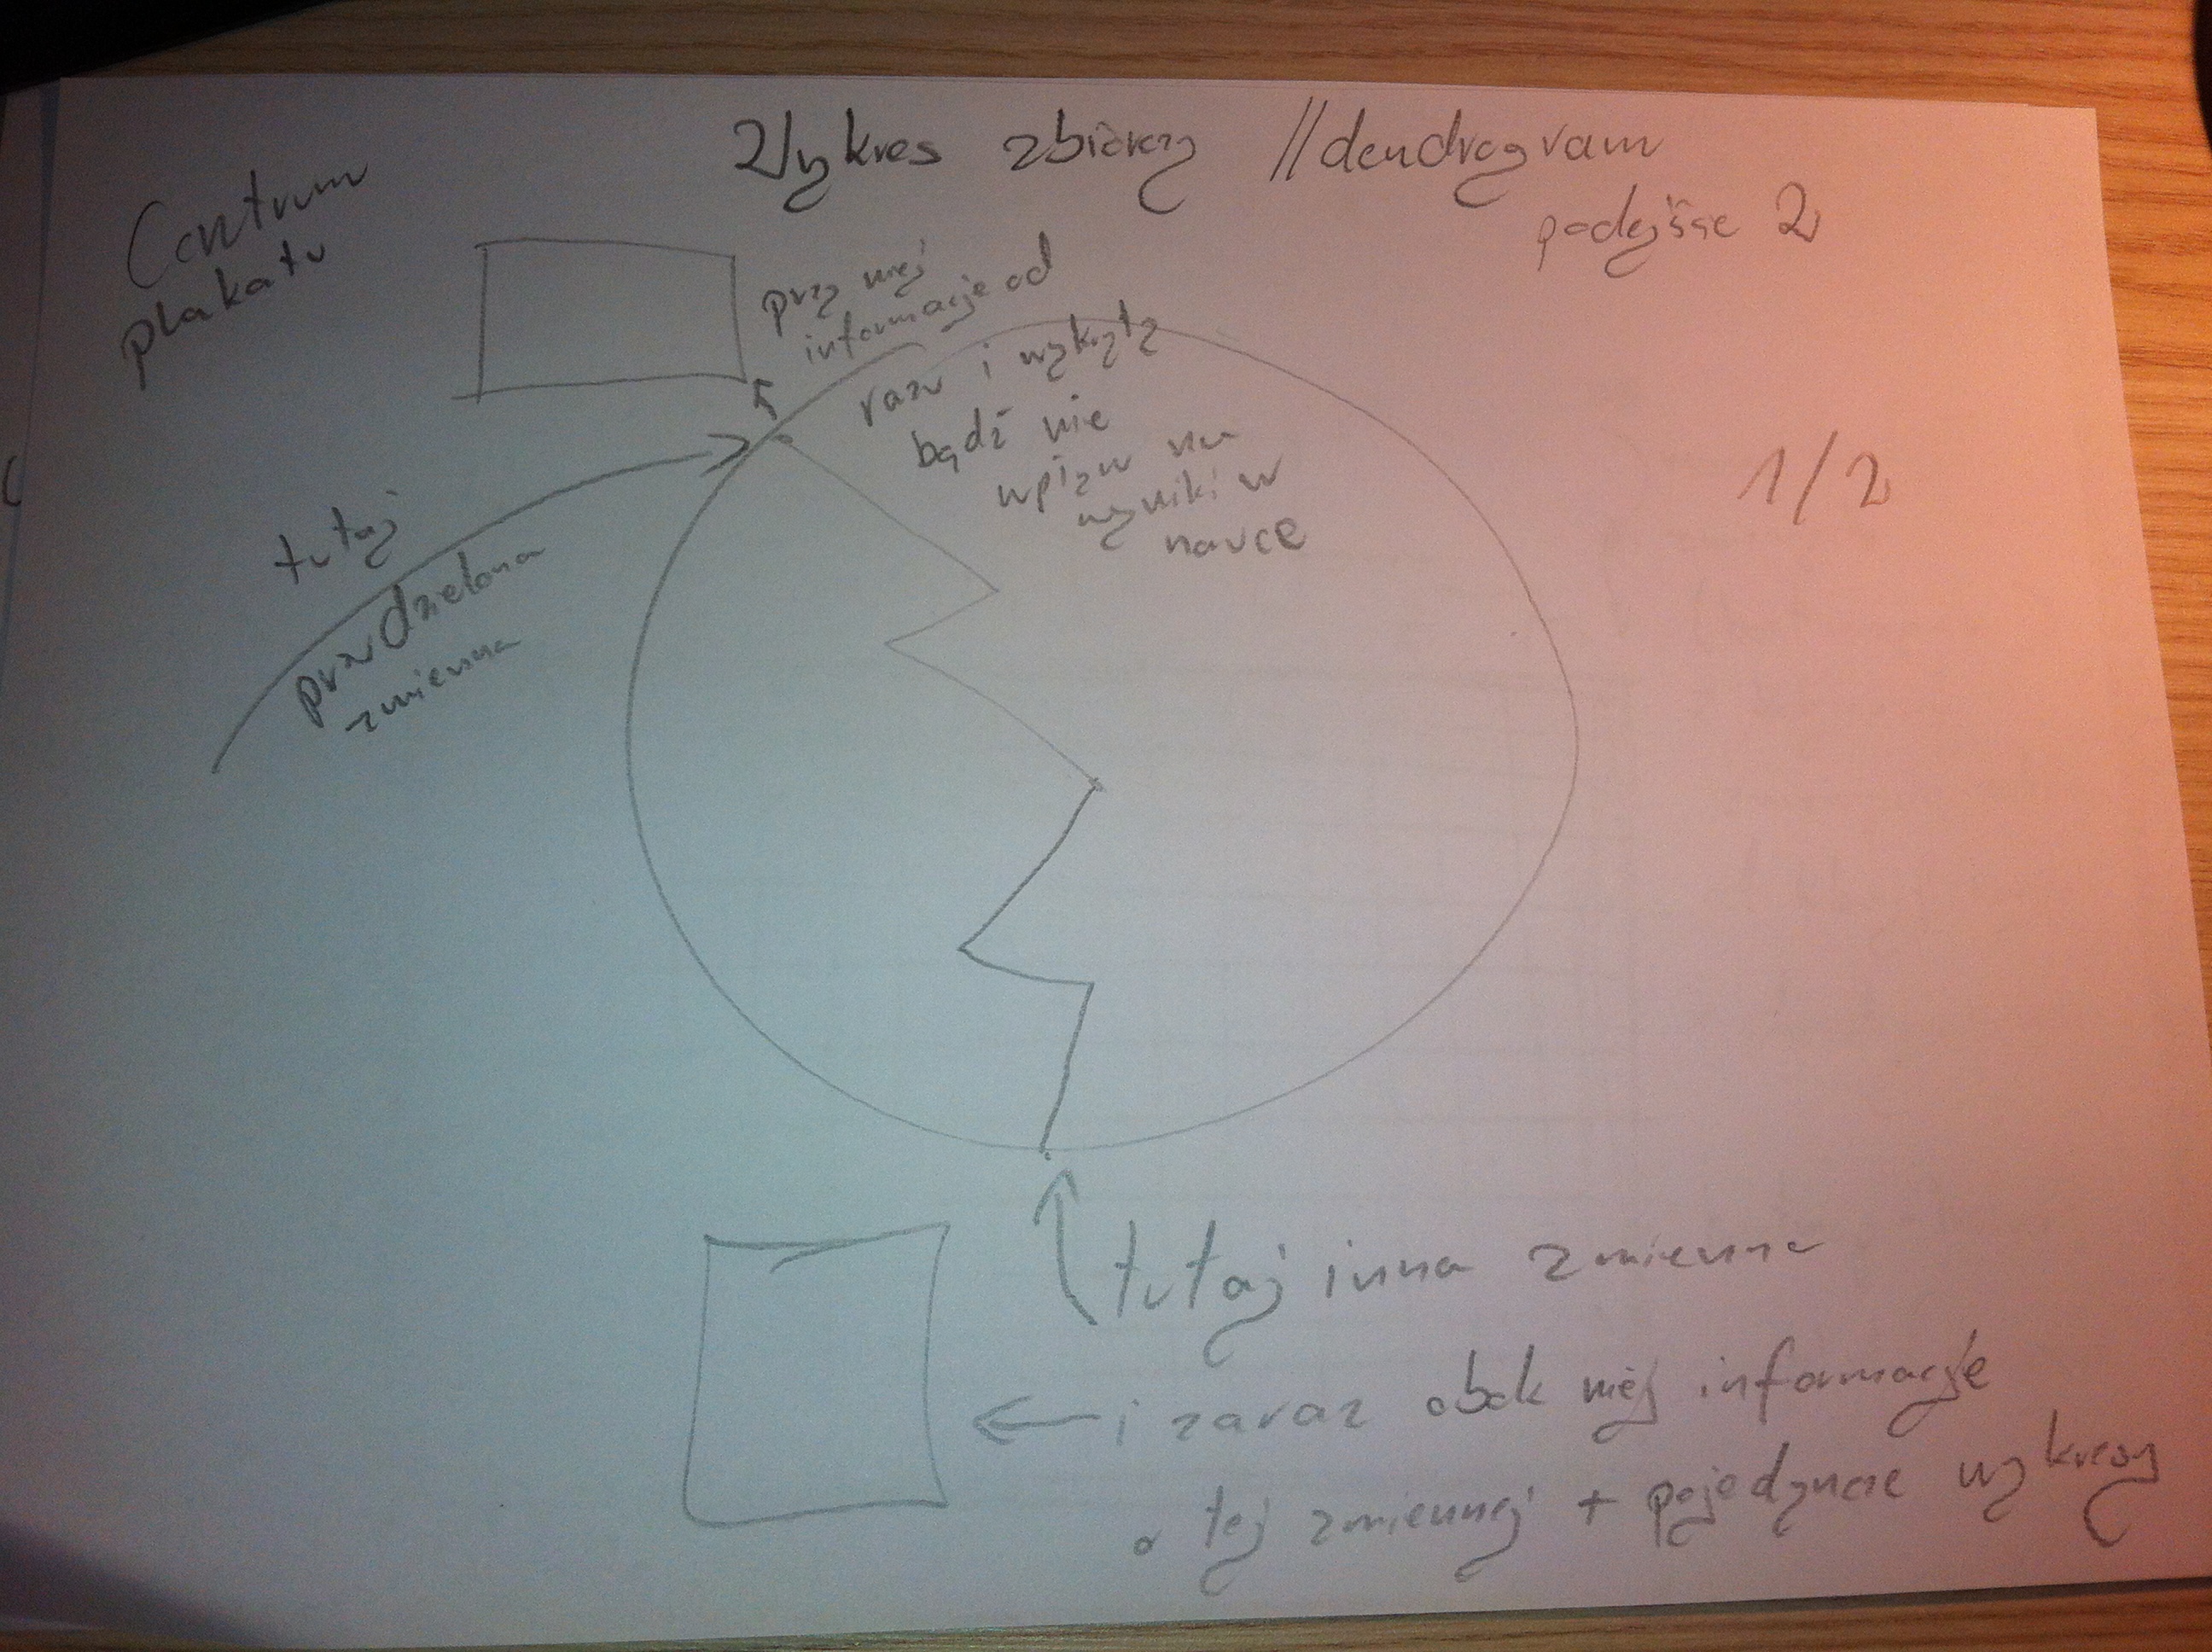 Wykres zbiorczy //dendrogram
podejście 2
Centrum
plakatu
przy niej
informacje od
razu i wykryty
bądź nie
wpływ na
wyniki w
nauce
1/2
tutaj
przydzielona
zmienna
tutaj inna zmienna
i zaraz obok niej informacje
o tej zmiennej + pojedyncze wykresy